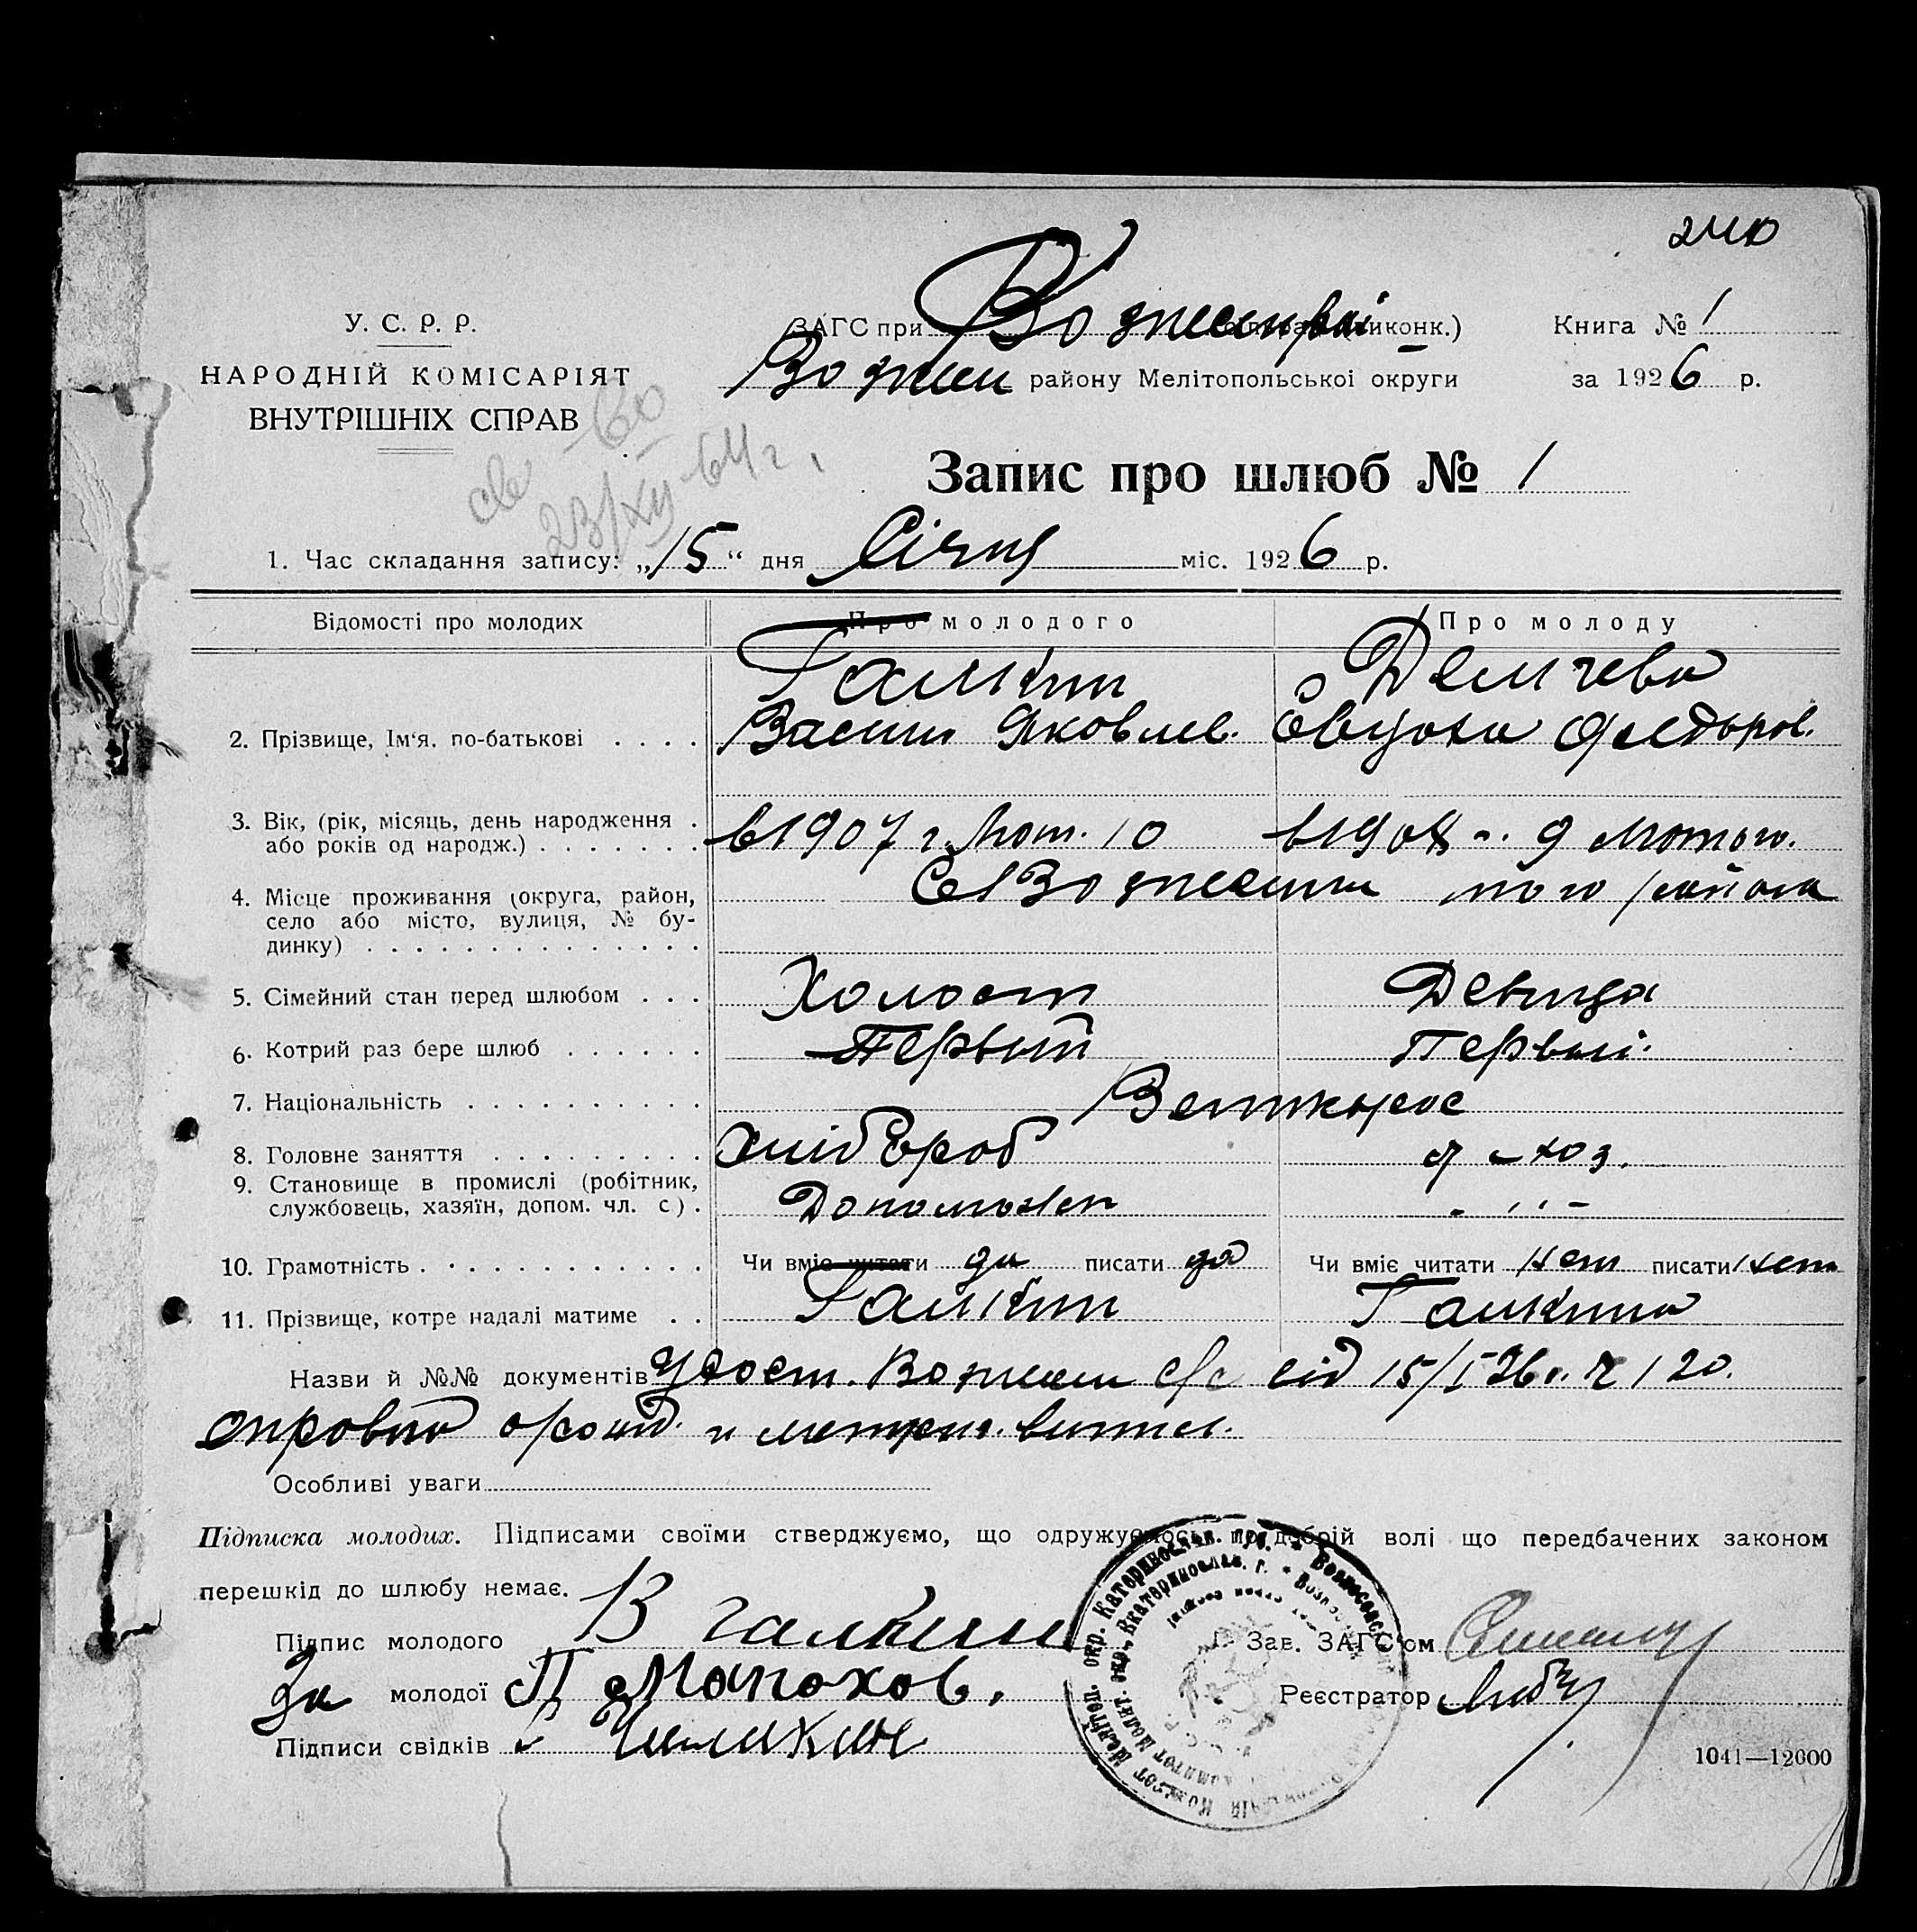 240
У. С. Р. Р.
НАРОДНІЙ КОМІСАРІЯТ
ВНУТРІШНІХ СПРАВ
ЗАГС при (виконк.) Книга № 1
Вознесен району Мелітопольської округи за 1926 р.
св-во
23/XII-64 г.
Запис про шлюб № 1
1. Час складання запису: „15“ дня Січня міс. 1926 р.
Відомості про молодих Про молодого Про молоду
Галкин Демчева
2. Прізвище, Ім‘я, по-батькові . . . . Васили Яковлев. Евдоким Федоров.
3. Вік, (рік, місяць, день народження . або років од народж.) . . . . . . . в 1907 г. Лют. 10 9 Лютого.
4. Місце проживання (округа, район, село або місто, вулиця, № будинку) . . . . . . . . . . . . . . . Вознесенки того района
5. Сімейний стан перед шлюбом . . . Холост Девица
6. Котрий раз бере шлюб . . . . . . Первый Первый.
7. Національність . . . . . . . . . . Великорос
8. Головне заняття . . . . . . . . . Хлібороб
9. Становище в промислі (робітник, службовець, хазяїн, допом. чл. с) . Допоможн - ,, -
10. Грамотність . . . . . . . . . . . . Чи вміє читати да писати да Чи вміє читати нет писати нет
11. Прізвище, котре надалі матиме . . Галкин Галкина
Назви й №№ документів Удост. Вознесен с/с від 15/I 26 г. № 120.
и метрич. выписи.
Особливі уваги
Підписка молодих. Підписами своїми стверджуємо, що одружуємось по добрій волі що передбачених законом
перешкід до шлюбу немає.
Підпис молодого В Галкин Зав. ЗАГС‘ом
За молодої П Малахов. Реєстратор
Підписи свідків Чиликин
1041—12000